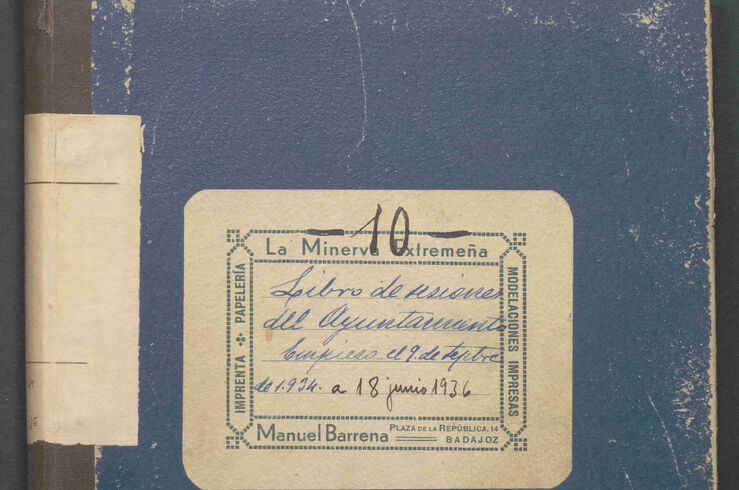 — 10 —
La Minerva Extremeña
IMPRENTA PAPELERÍA
MODELACIONES IMPRESAS
Libro de sesiones
del Ayuntamiento
Empieza el 9 de septbre
de 1.934. a 18 junio 1936
Manuel Barrena
PLAZA DE LA REPÚBLICA, 14
BADAJOZ